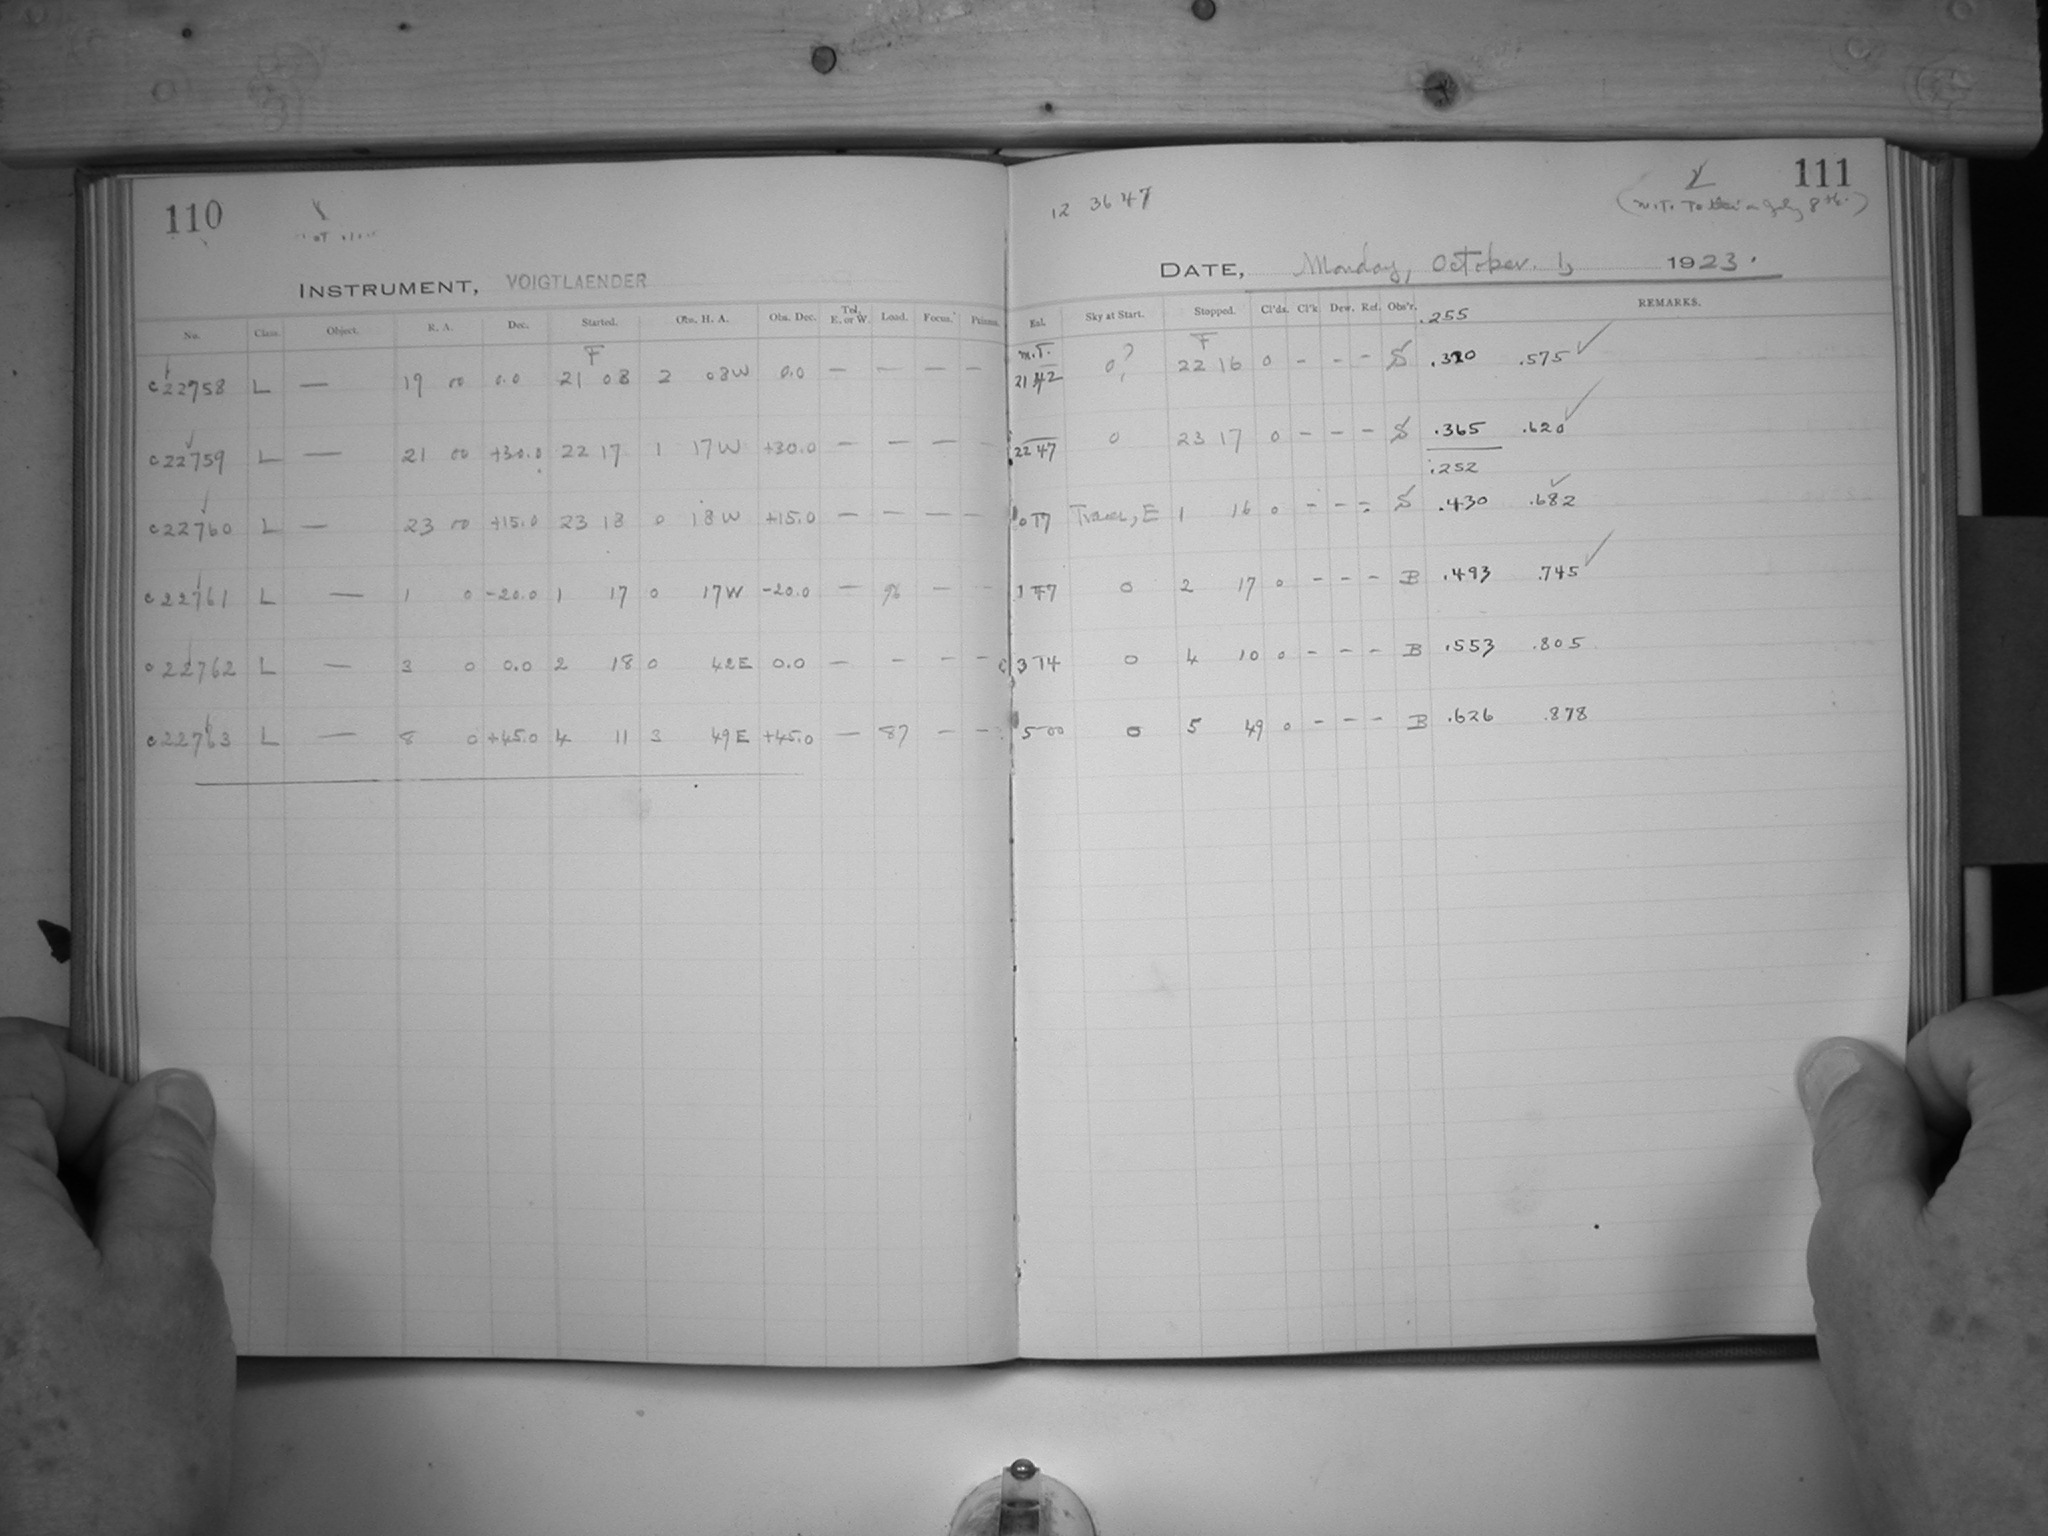 110
INSTRUMENT, VOIGTLAENDER
No. Class. Object. R. A. Dec. Started. Obs. H. A. Obs. Dec. Tel. E. or W. Load. Focus. Prisms.
F
c22758 L — 19 00 0.0 21 08 2 08W 0.0 — — — —
c22759 L — 21 00 +30.0 22 17 1 17W +30.0 — — — —
c22760 L — 23 00 +15.0 23 18 0 18W +15.0 — — — —
c22761 L — 1 0 -20.0 1 17 0 17W -20.0 — — —
c22762 L — 3 0 0.0 2 18 0 42E 0.0 — — — —
c22763 L — 8 0 +45.0 4 11 3 49E +45.0 — 87 — —
12 36 47
111
DATE, Monday, October 1, 1923.
Sky at Start. Stopped. Cl'ds. Cl'k. Dew. Ref. Obs'r. REMARKS.
.255
M.T. F
21 42 0? 22 16 0 - - - S .320 .575 ✓
22 47 0 23 17 0 - - - S .365 .620 ✓
.252
Traces, E 1 16 0 - - - S .430 .682 ✓
0 2 17 0 - - - B .493 .745 ✓
0 4 10 0 - - - B .553 .805
5 00 0 5 49 0 - - - B .626 .878